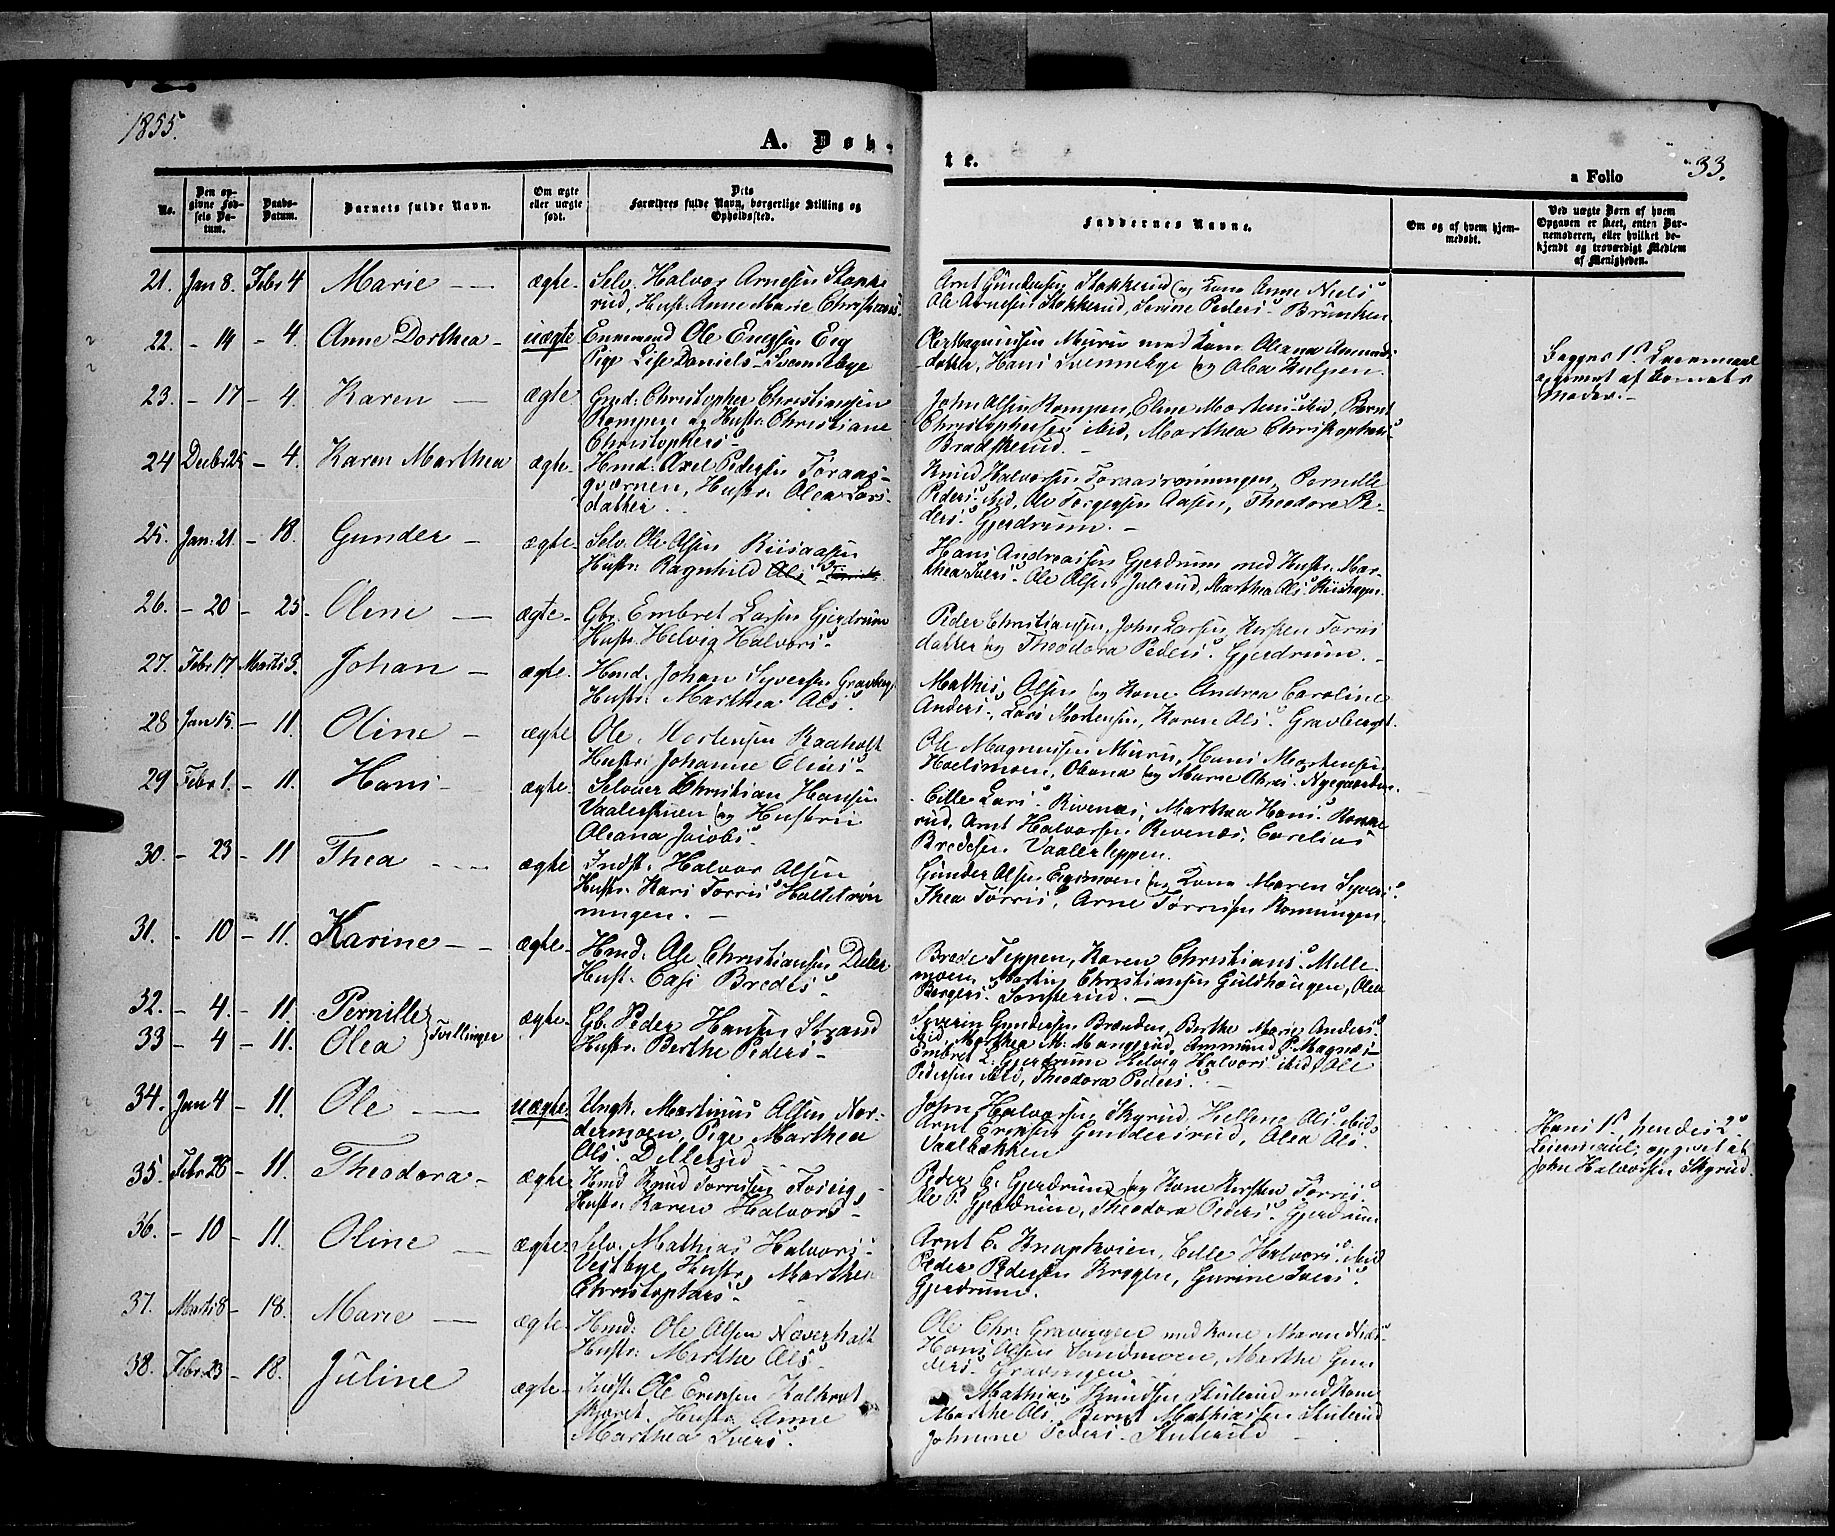 1855.
A. Døb-
te.
a Folio
33.
No.
Den op-
givne Fød-
sels Da-
tum.
Daabs-
Datum.
Barnets fulde Navn.
Om ægte
eller uægte
født.
Dets
Forældres fulde Navn, borgerlige Stilling og
Opholdssted.
Faddernes Navne.
Om og af hvem hjem-
medøbt.
Ved uægte Børn af hvem
Opgaven er skeet, enten Bar-
nemoderen, eller hvilket be-
kjendt og troværdigt Medlem
af Menigheden.
21. Jan 8. Febr 4 Marie — ægte-
Selv. Halvor Arnesen Stokke
rud, Hust. Anne Marie Christians.
Arnt Gundersen Stokkerud og Kone Anne Niels
Ole Arnesen Stokkerud, Serine Peders. Braaten
22. - 14 - 4. Anne Dorthea - uægte
Ungmand Ole Engesen Eeg
Pige Lise Daniels- Svennebye
Ole Magnussen Muren med Kone Oleana Amunds
datter, Hans Svennebye og Olea
Begges 1ste Leiermaal
opgivet af Barnets
Moder.-
23. - 17 - 4. Karen — ægte
Gmd: Christopher Christiansen
Rompen og Hustr: Christiane
Christophers-
John Olsen Rompen, Eline Mortens ibid, Bernt
Christophersen ibid, Marthea Christophers
Bradskerud. -
24 Decbr 25 - 4. Karen Marthea ægte-
Hmd: Axel Pedersen Foraas-
qværnen, Hustr: Olea Lars-
datter.
Knud Halvorsen Foraasrønningen, Pernille
Peders. ibid, Ole Torgersen Aasen, Theodore Pe-
ders. Gjerdrum. -
25. Jan: 21. - 18. Gunder - ægte-
Selv. Ole Olsen Riisaasen
Hustr: Ragnhild Ols
Hans Andreassen Gjerdrum med Hustr: Mar-
thea Ivers. Ole Olsen Julerud, Marthea Ols. Riisaasen.
26. - 20 - 25. Oline — ægte-
Gbr. Embret Larsen Gjerdrum
Hustr. Helvig Halvors-
Peder Christiansen, John Larsen, Kersten Torris
datter og Theodora Peders. Gjerdrum. -
27. Febr 17 Marts 3. Johan - ægte.
Hmd: Johan Syversen Gravberg,
Hustr: Marthea Ols.
Mathis Olsen og Kone Andrea Caroline
Anders-, Lars Mortensen, Karen Ols. Gravberget.
28 Jan 15 - 11. Oline - ægte
Ole Mortensen Raaholt
Hustr: Johanne Elias-
Ole Magnussen Muren, Hans Mortensen
Hoelsmoen, Oleana og Marie Ols. Nygaarden.
29 Febr 1. - 11. Hans - ægte.
Selveier Christian Hansen
Vaalermoen og Hustru
Oleana Jacobs.
Cille Lars. Rivenæs, Marthea Hans.
rud, Arnt Halvorsen Rivenæs, Corelius
Bredesen Vaalerteppen.
30. - 23 - 11 Thea — ægte
Indst. Halvor Olsen
Hustr. Kari Torris Holtet røn
ningen. -
Gunder Olsen Egsmoen og Kone Maren Syvers.
Thea Torris, Arne Torrissen Ronningen
31. - 10 - 11. Karine - ægte-
Hmd. Ole Christiansen Deler
Hust. Casi Bredes-
Brede Teppen, Karen Christians. Melle
moen, Martin Christiansen Guldhougen, Olea
Bergers. Tonsterud. -
32. - 4. - 11. Pernille
33 - 4 - 11. Olea } Tvillinger
ægte-
Gb. Peder Hansen Strand
Hustr: Berthe Peders-
Syverin Gundersen Braaden, Berthe Marie Anders.
ibid, Marthea M. Mangerud, Ammund P. Magnæs-
Embret L. Gjerdrum Helvig Halvors ibid, Ole
Pedersen ibid, Theodora Peders. -
34. Jan 4 - 11. Ole — uægte.
Ungk. Martinus Olsen Nor-
dermoen, Pige Marthea
Ols. Dellerud
John Halvorsen Skyrud, Hellene Ols. ibid,
Arnt Eriksen Guddersrud, Olea Ols.
Vaalbakken
Hans 1ste hendes 2det
Leiermaal, opgivet af
John Halvorsen Skyrud.
35. Febr 26 - 11. Theodora - ægte
Hmd Knud Torrissen Fosvig,
Hustr. Karen Halvors-
Peder C. Gjerdrum og Kone Kersten Torris.
Ole P. Gjerdrum, Theodora Peders. Gjerdrum
36. - 10 - 11. Oline — ægte-
Selv. Mathias Halvors-
Vestbye, Hustr. Marthea
Christophers-
Arnt C. Knapkvien, Cille Halvors. ibid
Peder Pedersen Krogen, Gurine Ivers.
Gjerdrum.
37. Marts 8- 18. Marie — ægte-
Hmd: Ole Olsen Næverholt
Hustr. Marthe Ols-
Ole Chr: Gravingen med Kone Maren Niels-
Hans Olsen Sandmoen, Marthe Gun
ders- Gravingen
38. Febr. 23 - 18. Juline ægte-
Indst. Ole Eriksen Kolkrot
skjæret. Hustr. Anne
Marthea Ivers.
Mathias Knudsen Skulerud med Kone
Marthe Ols. Bernt Mathiassen Skulerud
Johanne Peders- Skulerud -